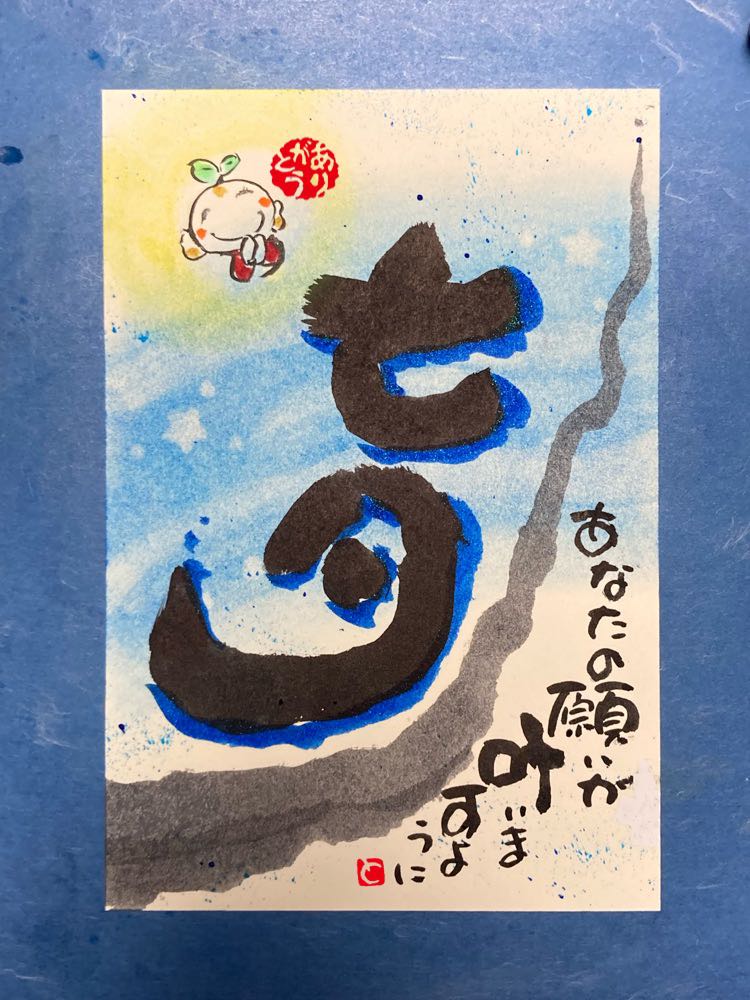 ありがとう
七夕
あなたの願いが
叶いま
すよ
うに